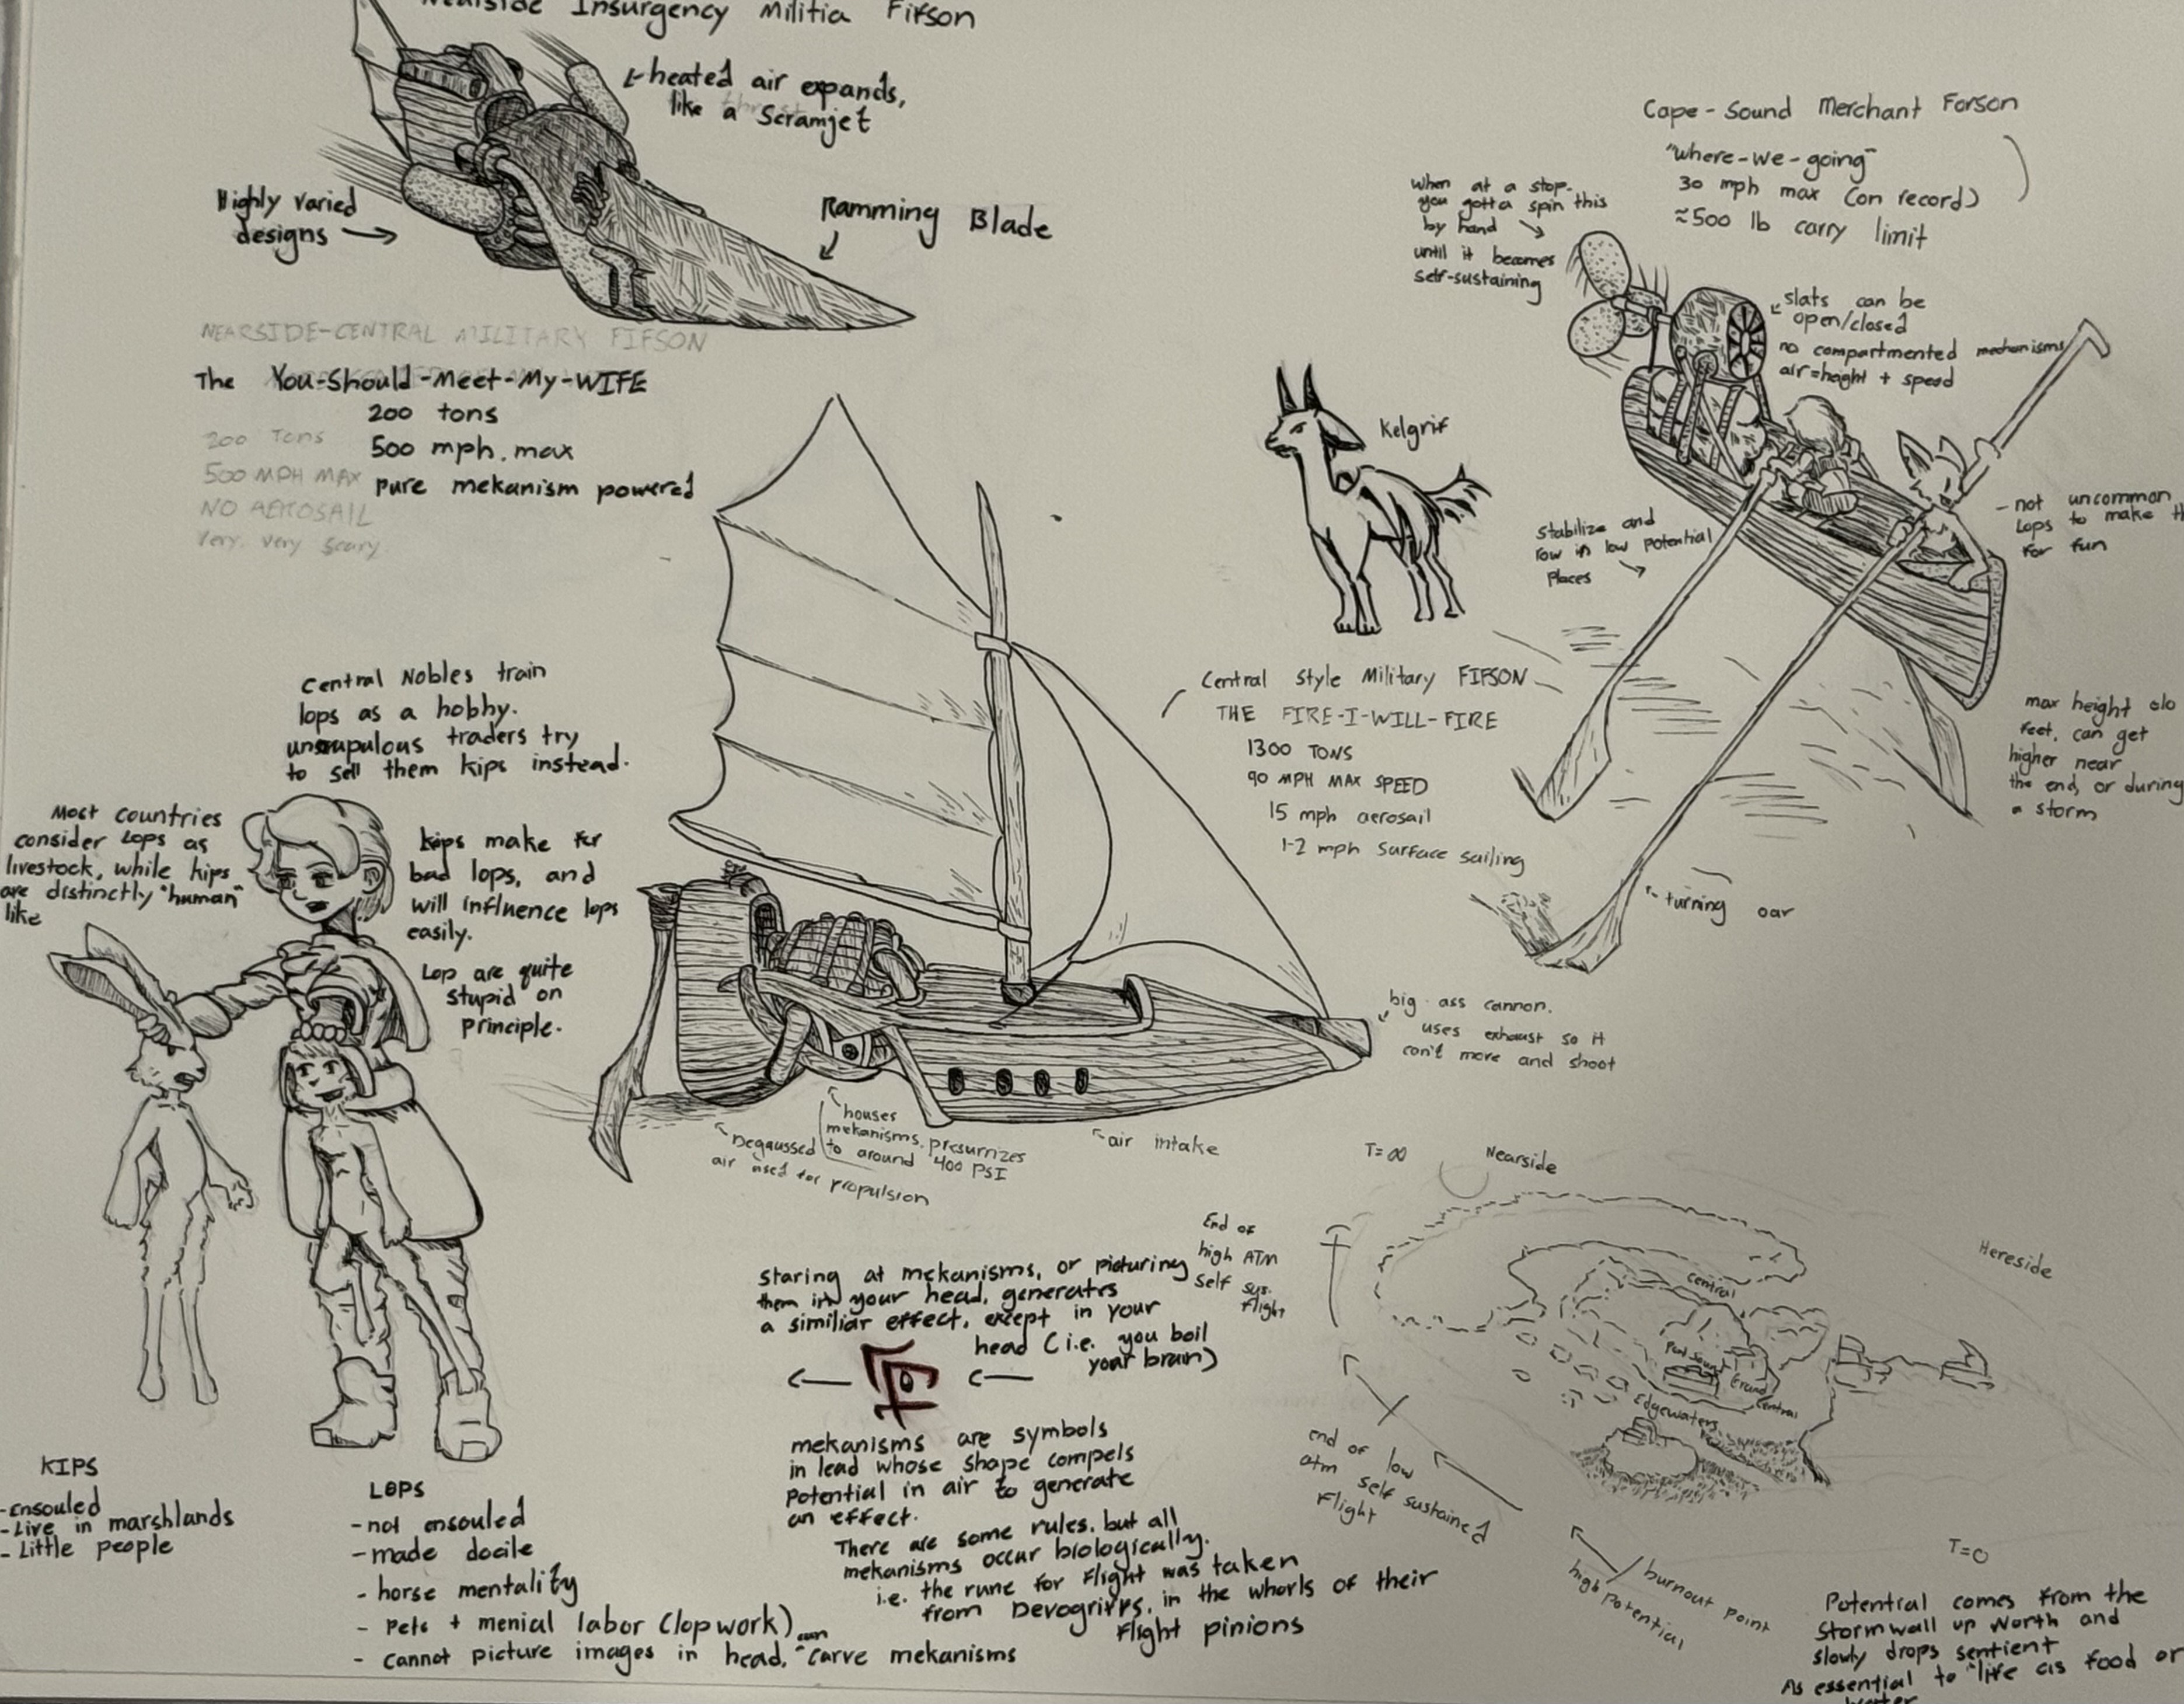 Nearside Insurgency Militia Fifson
heated air expands,
like a scramjet
Highly varied
designs
Ramming Blade
NEARSIDE-CENTRAL MILITARY FIFSON
The You-Should-Meet-My-WIFE
200 tons
500 mph. max
pure mekanism powered
200 Tons
500 MPH MAX
NO AEROSAIL
Very, very scary
Cape-Sound Merchant Forson
"where-we-going"
30 mph max (on record)
≈500 lb carry limit
when at a stop.
you gotta spin this
by hand
until it becomes
self-sustaining
slats can be
open/closed
no compartmented mechanisms
air=height + speed
Kelgrif
stabilize and
row in low potential
places
- not uncommon
Lops to make
for fun
max height
feet, can get
higher near
the end, or during
a storm
turning oar
Central Style Military FIFSON
THE FIRE-I-WILL-FIRE
1300 TONS
90 MPH MAX SPEED
15 mph aerosail
1-2 mph surface sailing
big ass cannon.
uses exhaust so it
can't move and shoot
houses
mekanisms. presurrizes
to around 400 PSI
Degaussed
air used for propulsion
air intake
Central Nobles train
lops as a hobby.
unscrupulous traders try
to sell them kips instead.
Most countries
consider Lops as
livestock, while kips
are distinctly "human"
like
Kips make for
bad lops, and
will influence lops
easily.
Lop are quite
stupid on
principle.
KIPS
- ensouled
- Live in marshlands
- Little people
LOPS
- not ensouled
- made docile
- horse mentality
- Pets + menial labor (lopwork)
- cannot picture images in head, can carve mekanisms
staring at mekanisms, or picturing
them in your head, generates
a similiar effect, except in your
head (i.e. you boil
your brain)
mekanisms are symbols
in lead whose shape compels
Potential in air to generate
an effect.
There are some rules, but all
mekanisms occur biologically.
i.e. the rune for flight was taken
from Devogrifrs, in the whorls of their
flight pinions
T=∞
Nearside
Hereside
End of
high ATM
self sus.
flight
Central
Port Sound
Grand
Central
Edgewaters
end of low
atm self sustained
Flight
burnout point
high potential
T=0
Potential comes from the
Stormwall up North and
slowly drops sentient
As essential to life as food or
water